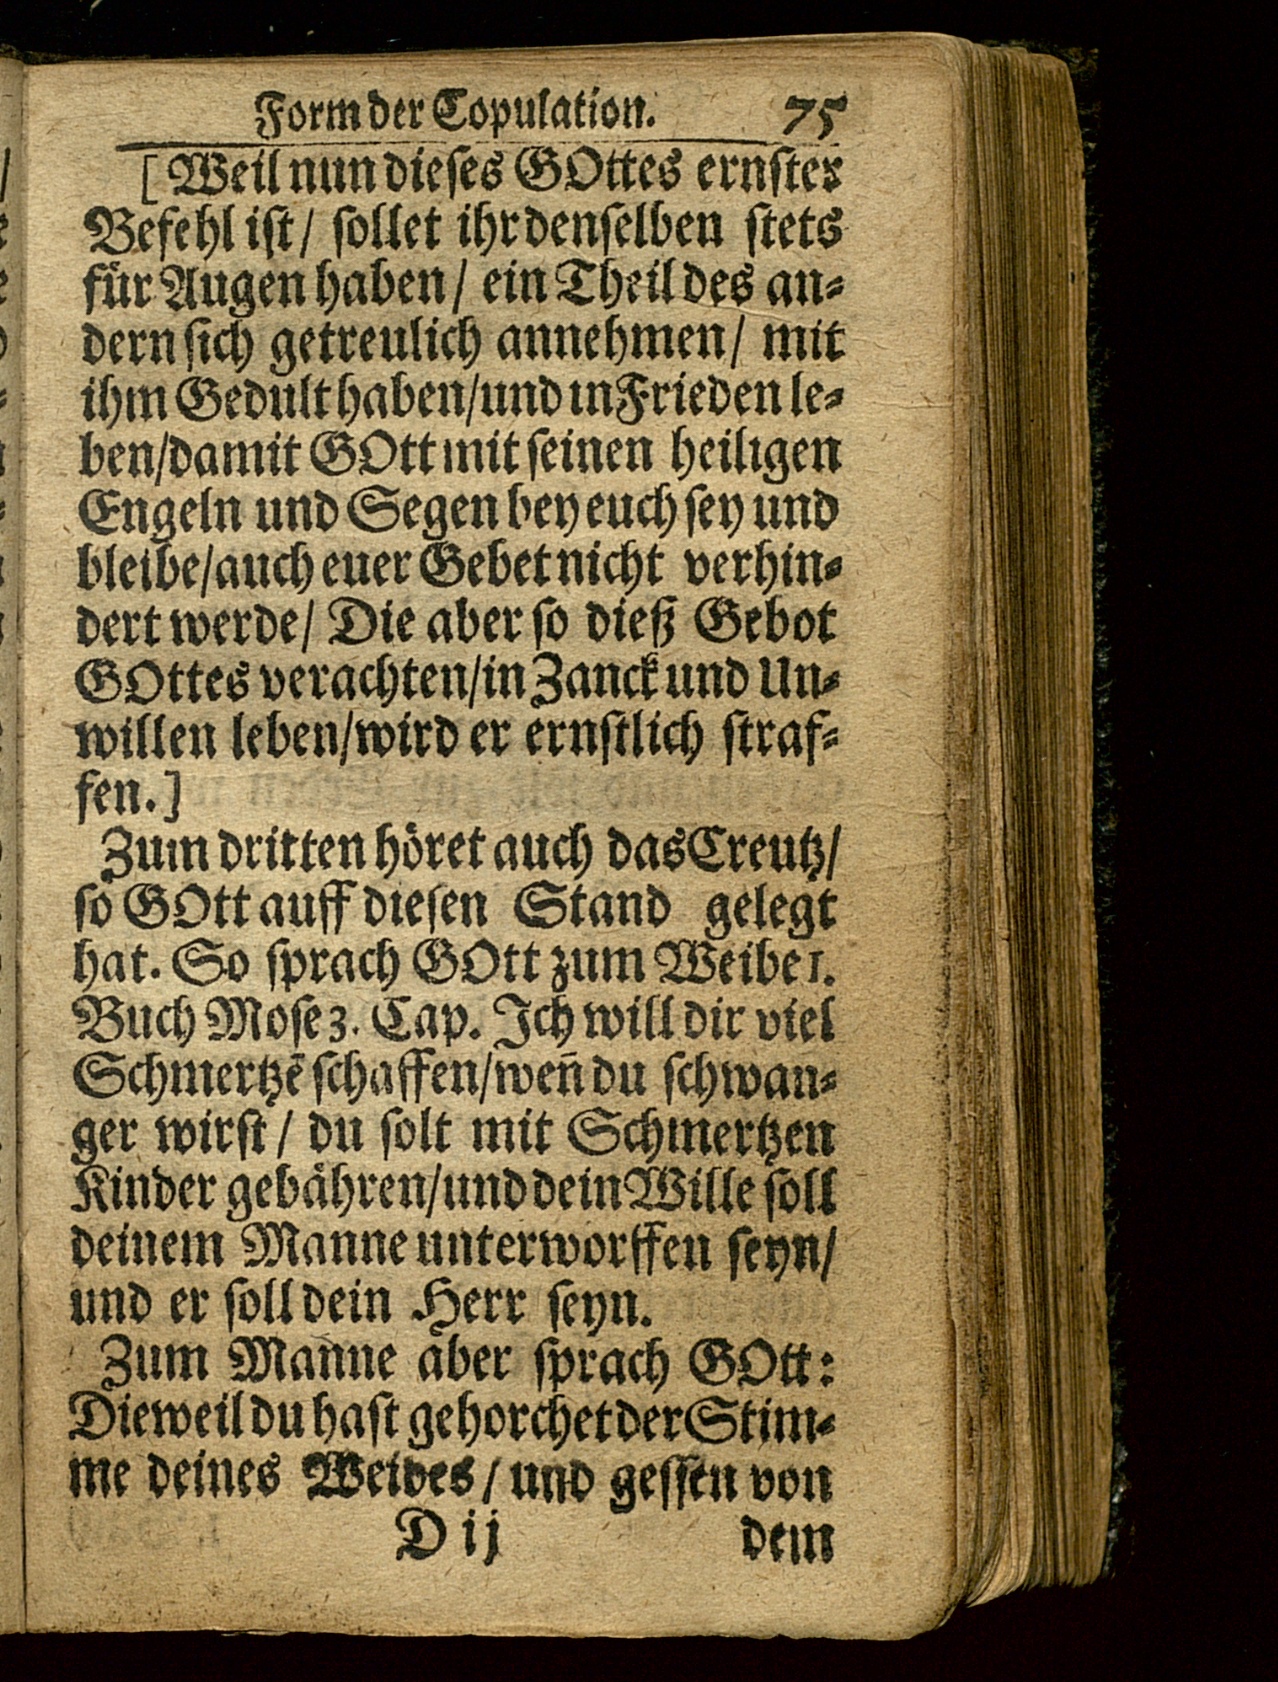 Form der Copulation. 75
[Weil nun dieses GOttes ernster
Befehl ist/ sollet ihr denselben stets
für Augen haben/ ein Theil des an-
dern sich getreulich annehmen/ mit
ihm Gedult haben/und in Frieden le-
ben/damit GOtt mit seinen heiligen
Engeln und Segen bey euch sey und
bleibe/auch euer Gebet nicht verhin-
dert werde/ Die aber so dieß Gebot
GOttes verachten/in Zanck und Un-
willen leben/wird er ernstlich straf-
fen.]
Zum dritten höret auch das Creutz/
so GOtt auff diesen Stand gelegt
hat. So sprach GOtt zum Weibe 1.
Buch Mose 3. Cap. Ich will dir viel
Schmertzē schaffen/weñ du schwan-
ger wirst/ du solt mit Schmertzen
Kinder gebähren/und dein Wille soll
deinem Manne unterworffen seyn/
und er soll dein Herr seyn.
Zum Manne aber sprach GOtt:
Dieweil du hast gehorchet der Stim-
me deines Weibes/ und gessen von
D ij dem